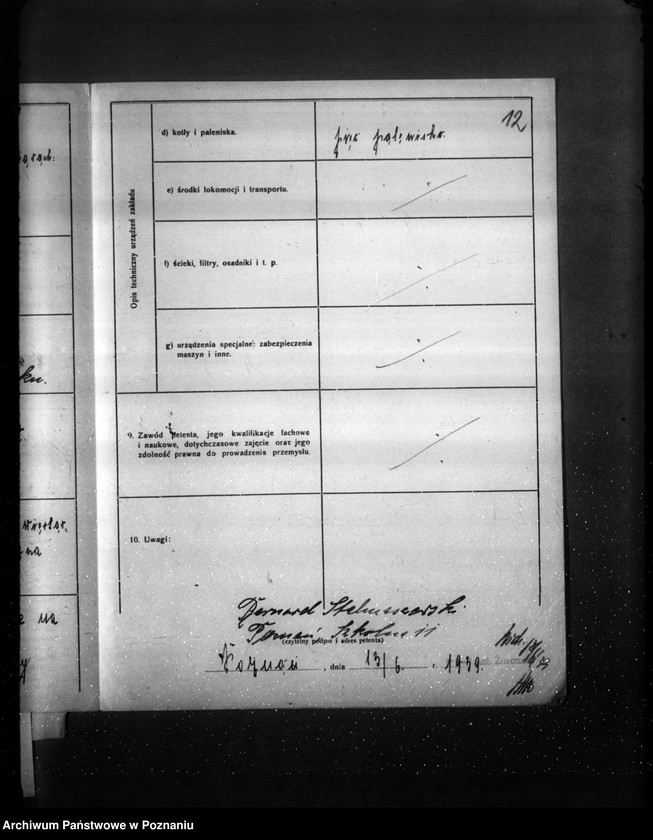 12
d) kotły i paleniska.
e) środki lokomocji i transportu.
f) ścieki, filtry, osadniki i t. p.
g) urządzenia specjalne: zabezpieczenia
maszyn i inne.
Opis techniczny urządzeń zakładu
9. Zawód petenta, jego kwalifikacje fachowe
i naukowe, dotychczasowe zajęcie oraz jego
zdolność prawna do prowadzenia przemysłu.
10. Uwagi:
Bernard
Poznań Szkolna 11
(czytelny podpis i adres petenta)
Poznań, dnia 13/6. r. 1939.
na
na
Archiwum Państwowe w Poznaniu